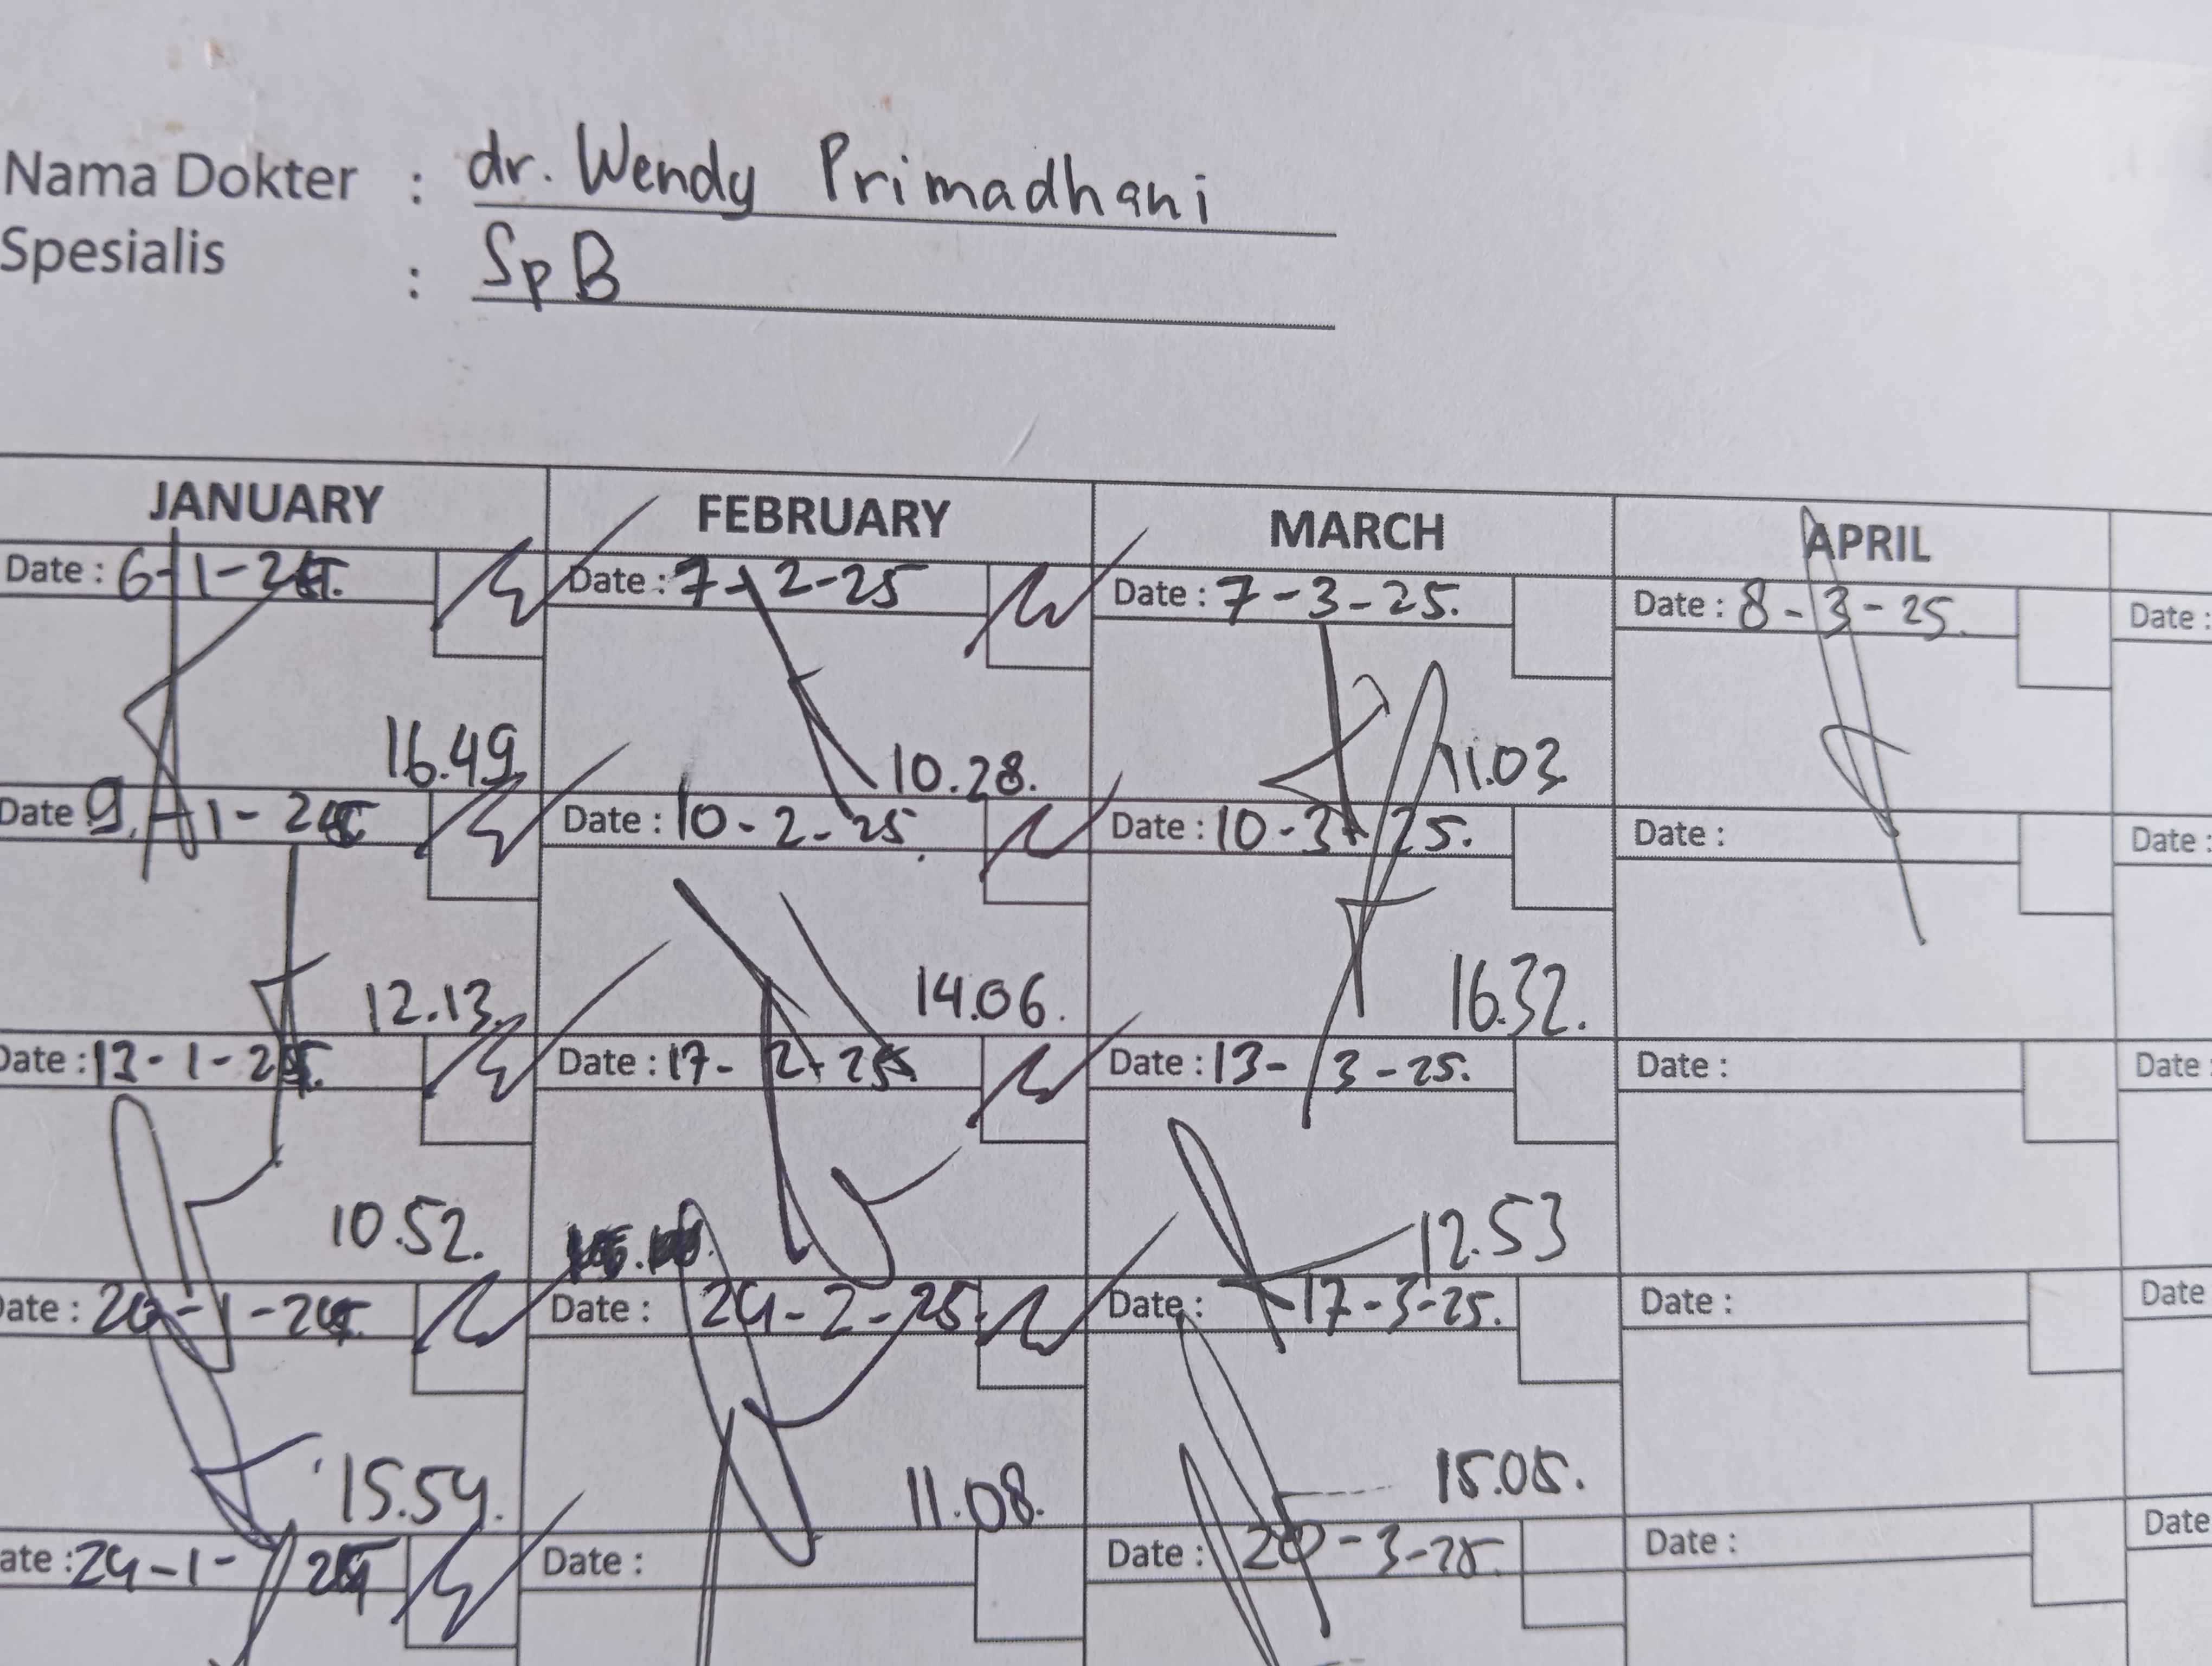 Nama Dokter : dr. Wendy Primadhani
Spesialis : SpB
JANUARY FEBRUARY MARCH APRIL
Date : 6-1-25. Date : 7-2-25 Date : 7-3-25. Date : 8-3-25. Date :
16.49 10.28. 11.03
Date 9-1-25 Date : 10-2-25 Date : 10-3-25. Date : Date :
12.13. 14.06. 16.32.
Date : 13-1-25. Date : 17-2-25 Date : 13-3-25. Date : Date
10.52. 12.53
ate : 20-1-25. Date : 24-2-25. Date : 17-3-25. Date : Date
15.54. 11.08. 15.05.
ate : 24-1-25 Date : Date : 20-3-25. Date : Date